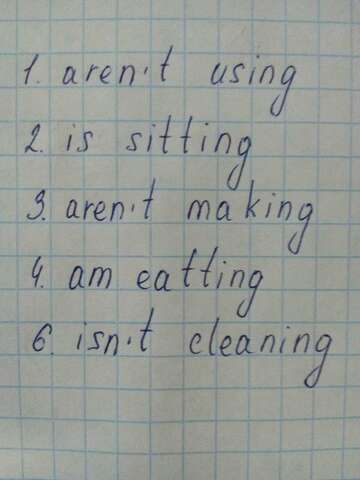 1. aren't using
2. is sitting
3. aren't making
4. am eatting
6. isn't cleaning